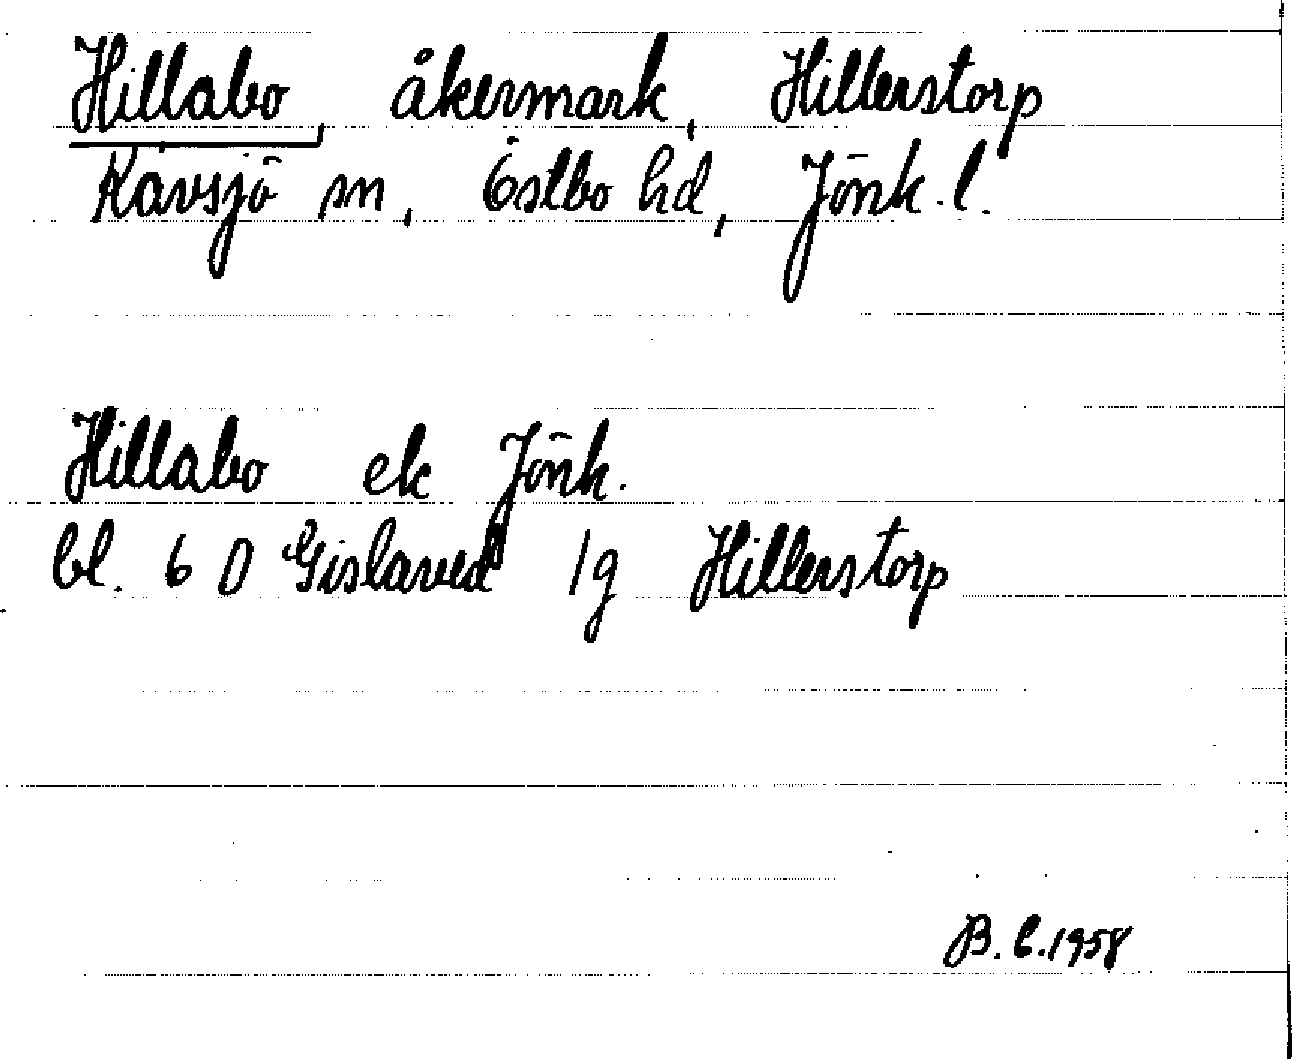 Hillabo, åkermark, Hillerstorp
Kävsjö sn, Östbo hd, Jönk. l.
Hillabo ek Jönk.
bl. 6 D Gislaved 1g Hillerstorp
B. C. 1958